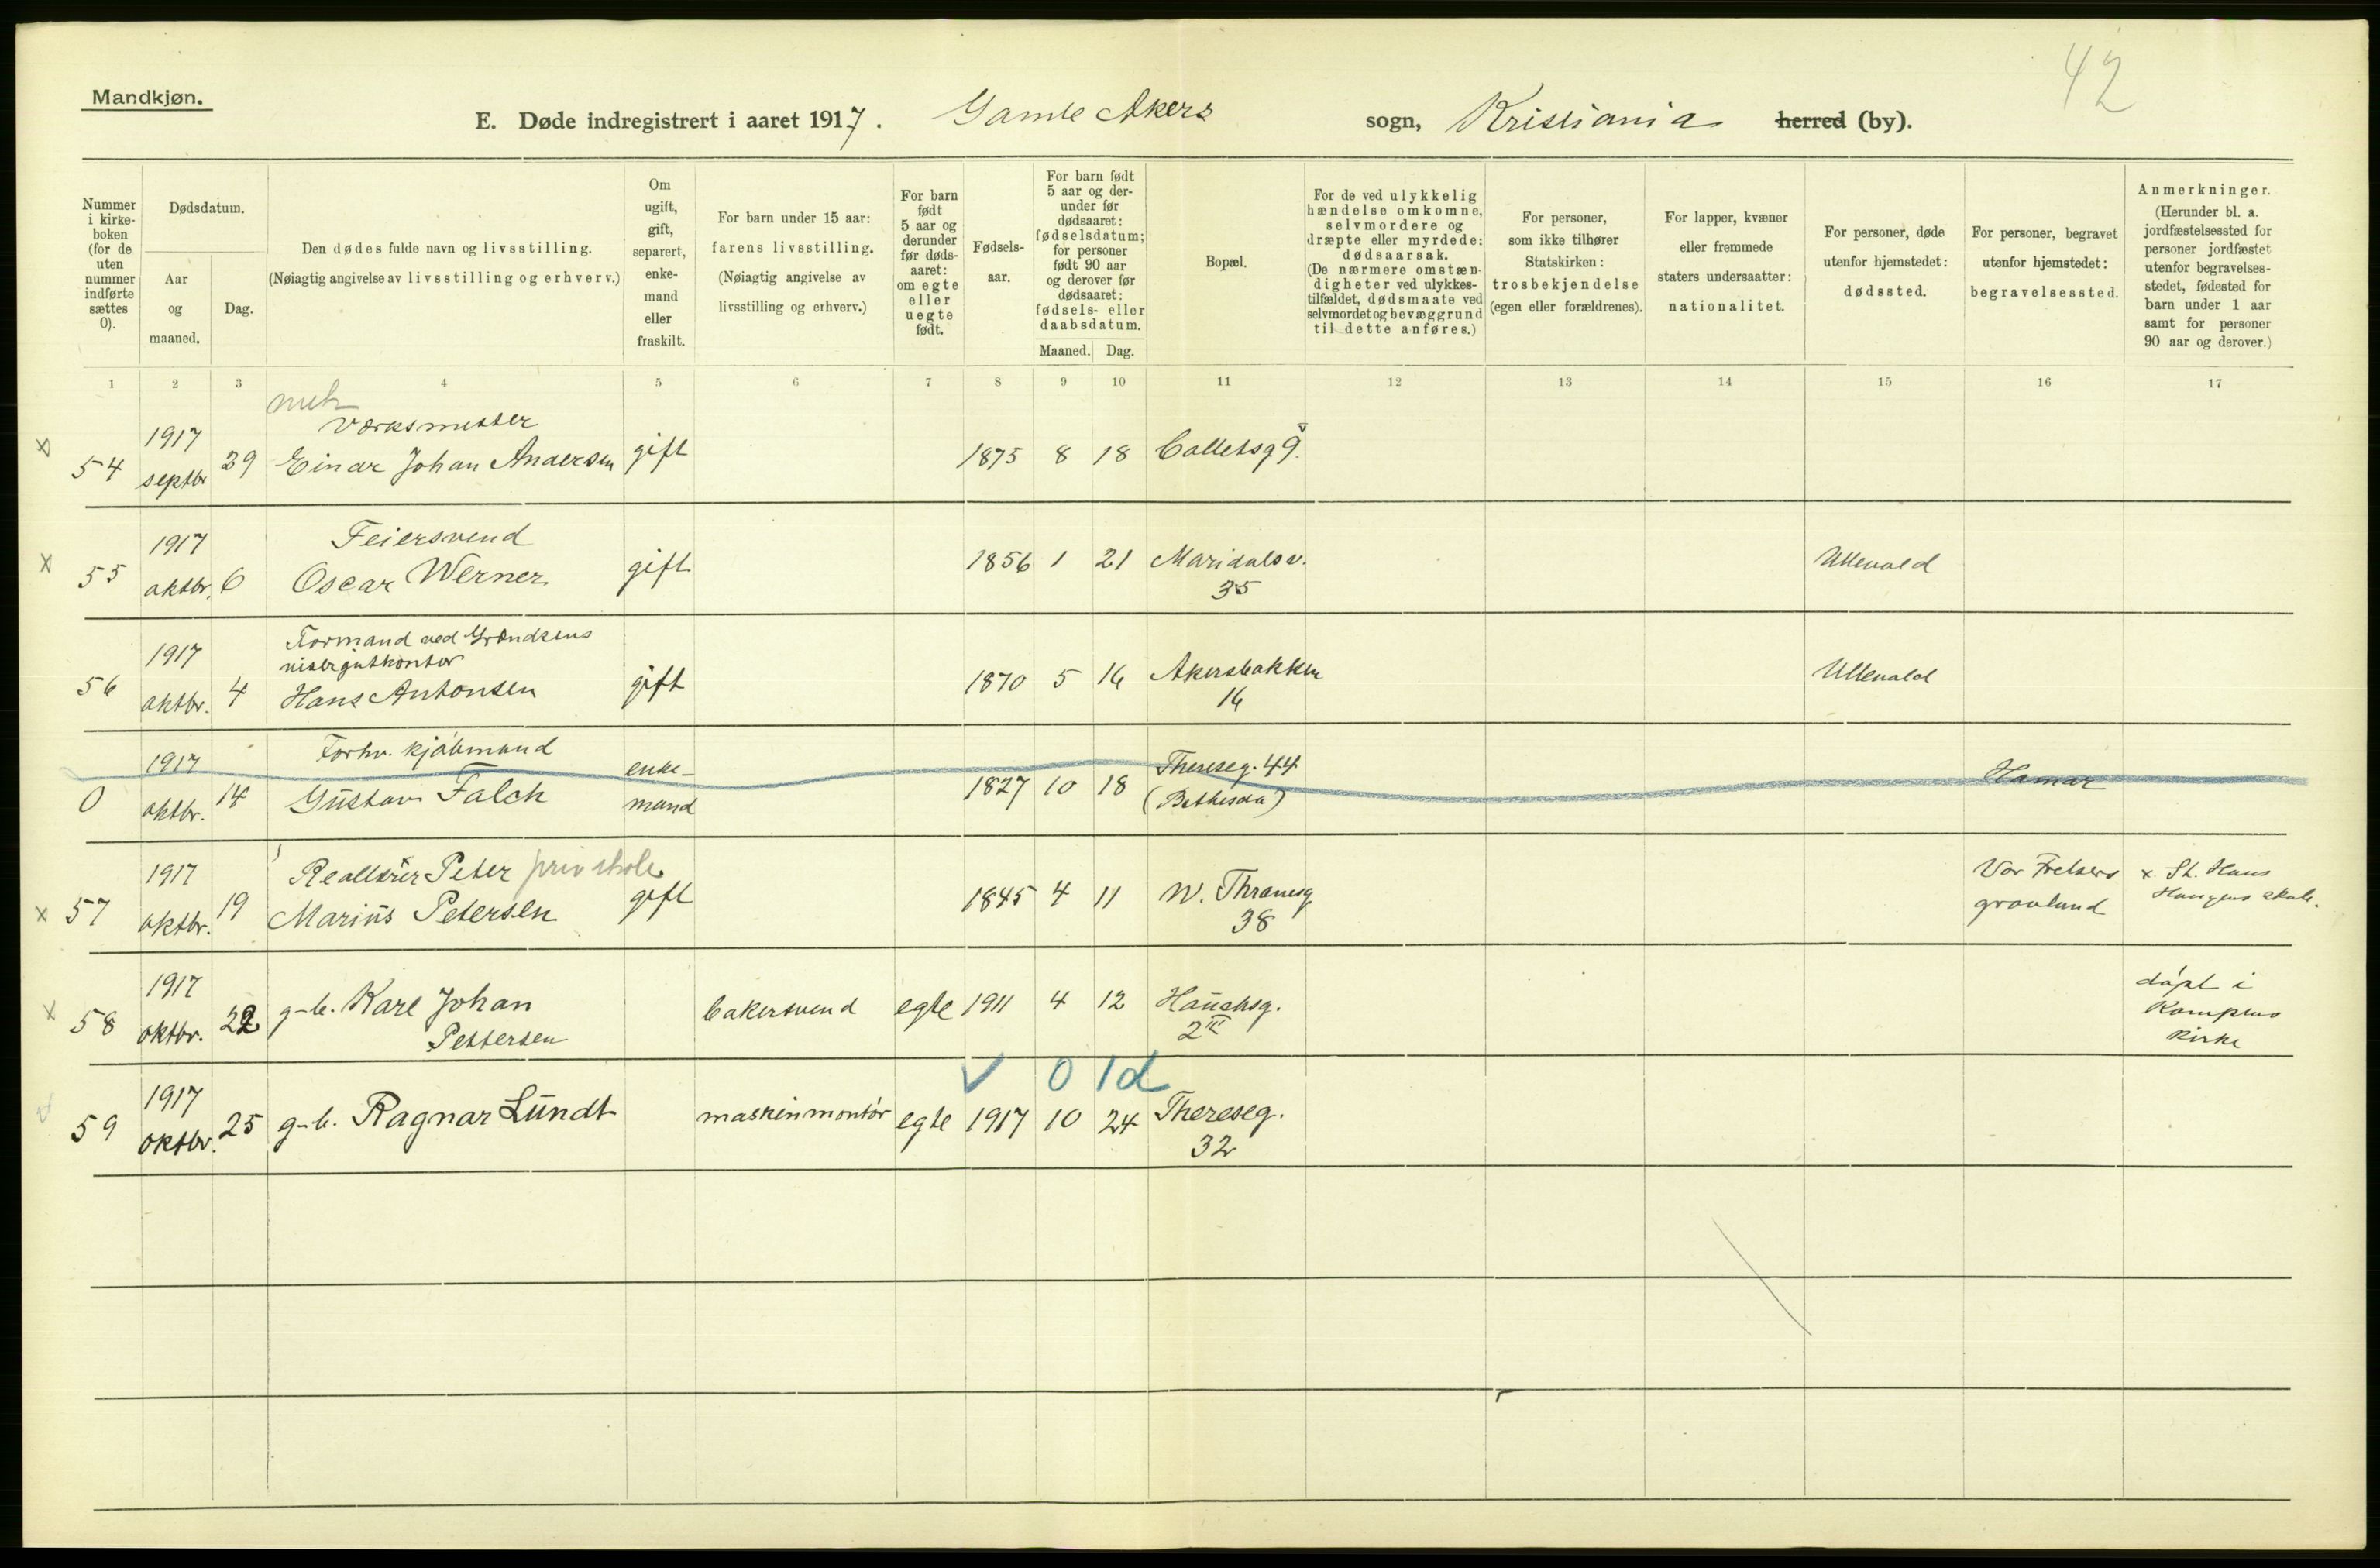 42
Mandkjøn.
E. Døde indregistrert i aaret 1917. Gamle Akers sogn, Kristiania herred (by).
Nummer i kirkeboken (for de uten nummer indførte sættes 0).
Dødsdatum.
Aar og maaned.
Dag.
Den dødes fulde navn og livsstilling.
(Nøiagtig angivelse av livsstilling og erhverv.)
Om ugift, gift, separert, enkemand eller fraskilt.
For barn under 15 aar:
farens livsstilling.
(Nøiagtig angivelse av livsstilling og erhverv.)
For barn født 5 aar og derunder før dødsaaret: om egte eller uegte født.
Fødselsaar.
For barn født 5 aar og derunder før dødsaaret: fødselsdatum; for personer født 90 aar og derover før dødsaaret: fødsels- eller daabsdatum.
Maaned. Dag.
Bopæl.
For de ved ulykkelig hændelse omkomne, selvmordere og dræpte eller myrdede: dødsaarsak.
(De nærmere omstændigheter ved ulykkestilfældet, dødsmaate ved selvmordet og bevæggrund til dette anføres.)
For personer, som ikke tilhører Statskirken: trosbekjendelse (egen eller forældrenes).
For lapper, kvæner eller fremmede staters undersaatter: nationalitet.
For personer, døde utenfor hjemstedet: dødssted.
For personer, begravet utenfor hjemstedet: begravelsessted.
Anmerkninger.
(Herunder bl. a. jordfæstelsessted for personer jordfæstet utenfor begravelsesstedet, fødested for barn under 1 aar samt for personer 90 aar og derover.)
1 2 3 4 5 6 7 8 9 10 11 12 13 14 15 16 17
mek
Værksmester
x 54 1917 septbr 29 Einar Johan Andersen gift 1875 8 18 Colletsg 9 v
Feiersvend
x 55 1917 oktbr. 6 Oscar Werner gift 1856 1 21 Maridalsv. 35 Ullevold
Formand ved Grændsens
56 1917 oktbr. 4 Hans Antonsen gift 1870 5 16 Akersbakken 16 Ullevold
Forhv. kjøbmand
0 1917 oktbr. 14 Gustav Falck enkemand 1827 10 18 Thereseg. 44 (Bethesda) Hamar
Reallærer Peter priv skole
x 57 1917 oktbr. 19 Marius Petersen gift 1845 4 11 W. Thranesg. 38 Vor Frelsers gravlund x. St. Hans Haugens skole.
x 58 1917 oktbr. 22 g-b. Karl Johan Pettersen bakersvend egte 1911 4 12 Hauchsg. 2 III døpt i Kampens kirke
v 0 1d
59 1917 oktbr. 25 g-b. Ragnar Lundt maskinmontør egte 1917 10 24 Thereseg. 32